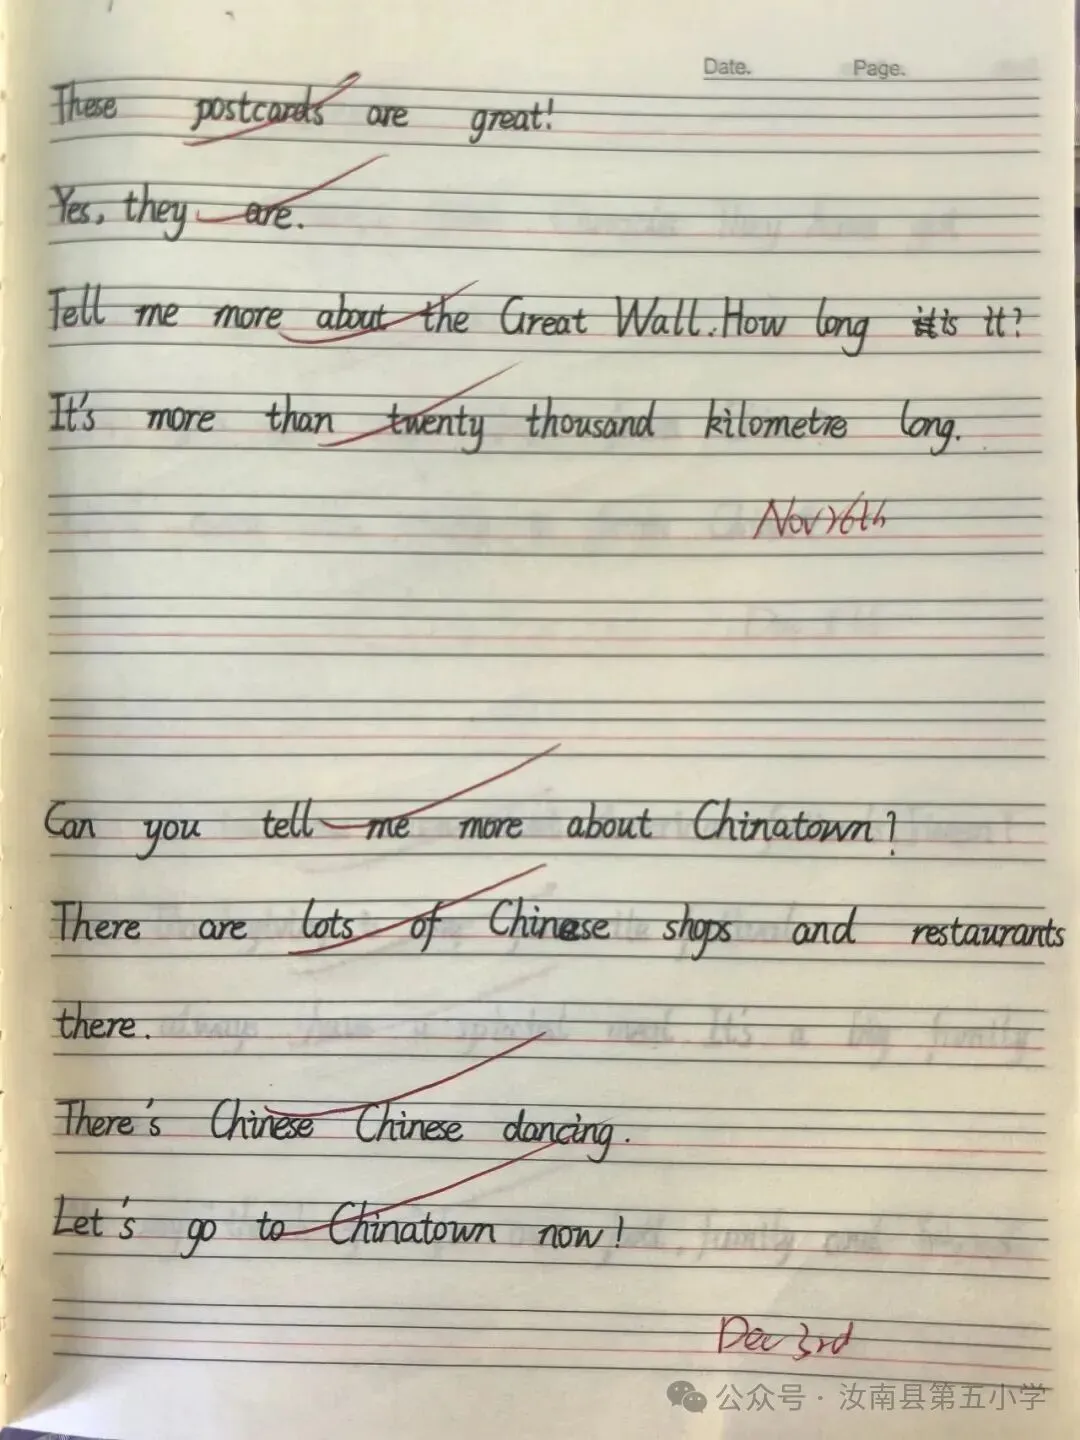 Date. Page.
These postcards are great!
Yes, they are.
Tell me more about the Great Wall. How long is it?
It's more than twenty thousand kilometre long.
Nov 26th
Can you tell me more about Chinatown?
There are lots of Chinese shops and restaurants
there.
There's Chinese Chinese dancing.
Let's go to Chinatown now!
Dec 3rd
公众号·汝南县第五小学